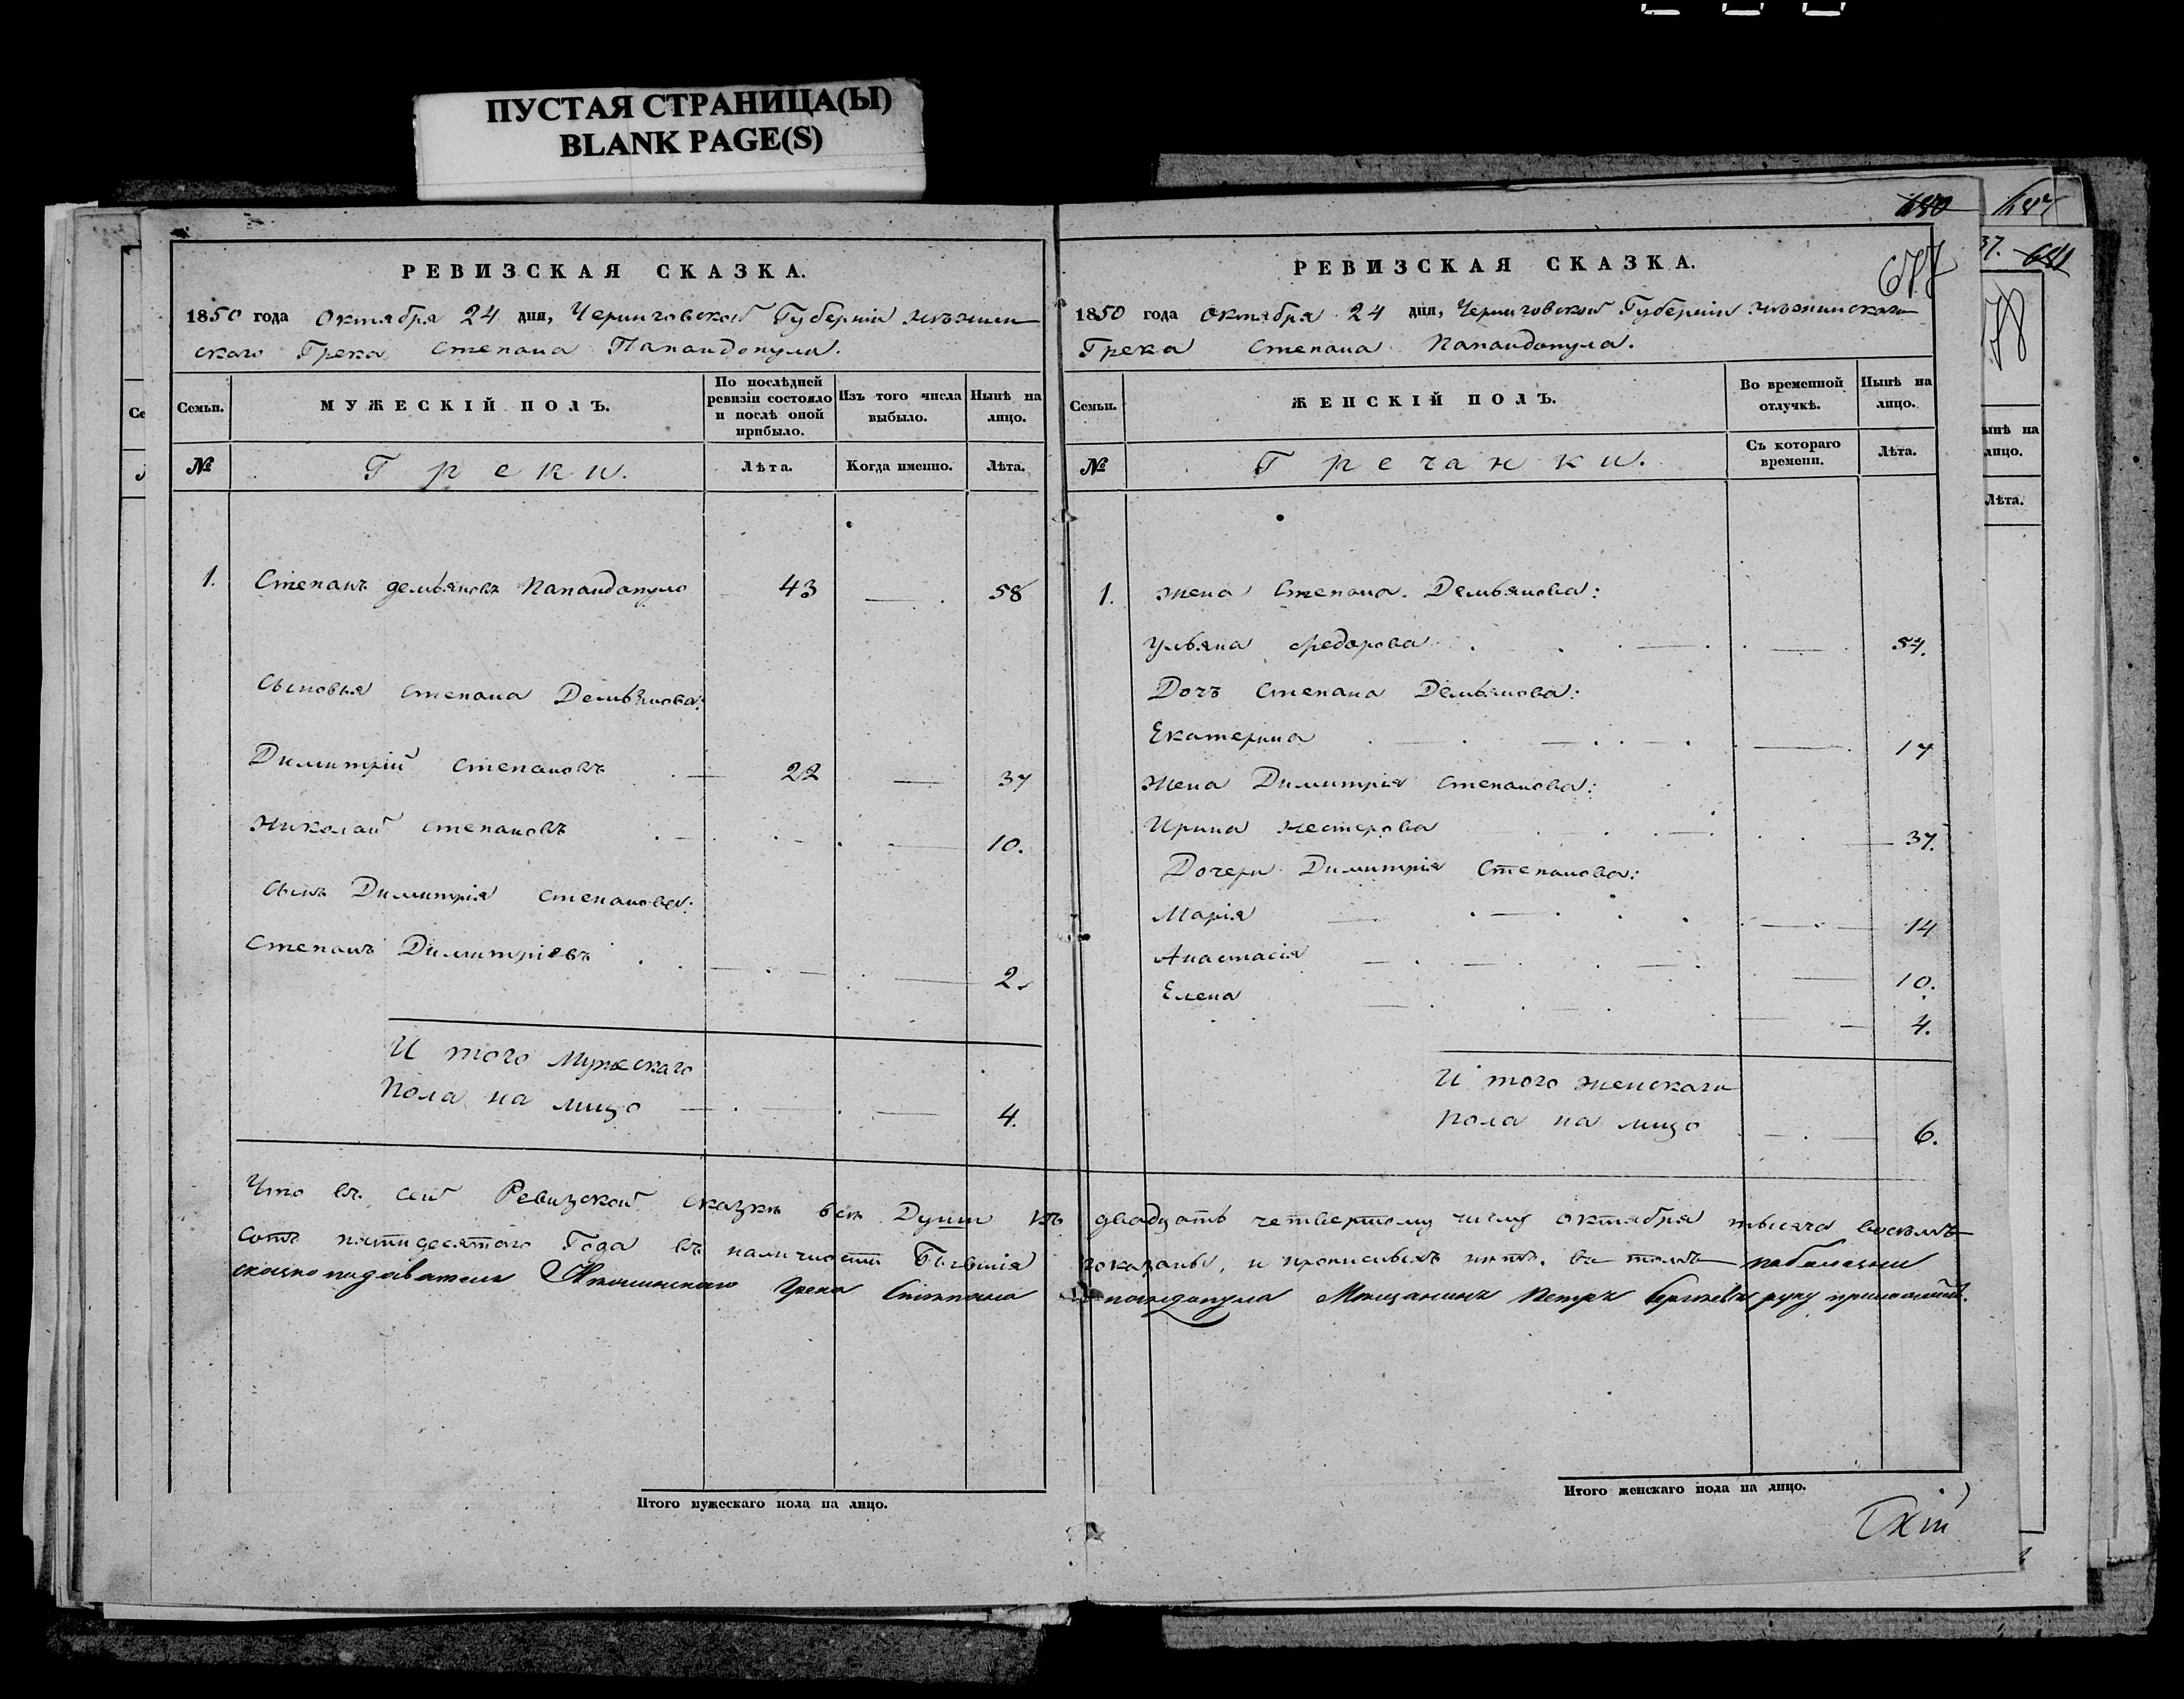 ПУСТАЯ СТРАНИЦА(Ы)
BLANK PAGE(S)
РЕВИЗСКАЯ СКАЗКА.
1850 года Октября 24 дня, Черниговской Губерніи Нѣжин
скаго Грека Степана Папандопула.
Семьи.
МУЖЕСКІЙ ПОЛЪ.
По послѣдней ревизіи состояло и послѣ оной прибыло.
Изъ того числа выбыло.
Нынѣ на лицо.
№
Греки.
Лѣта.
Когда именно.
Лѣта.
1. Степанъ Демьяновъ Папандопуло 43 — 58
Сыновья Степана Демьянова:
Димитрій Степановъ — 22 — 37
Николай Степановъ — 10.
Сынъ Димитрія Степанова:
Степанъ Димитріевъ — 2.
И того Мужескаго
Пола на лицо — 4.
РЕВИЗСКАЯ СКАЗКА.
1850 года Октября 24 дня, Черниговской Губерніи Нѣжинскаго
Грека Степана Папандопула.
Семьи.
ЖЕНСКІЙ ПОЛЪ.
Во временной отлучкѣ.
Нынѣ на лицо.
№
Гречанки.
Съ котораго времени.
Лѣта.
1. Жена Степана Демьянова:
Ульяна Федорова — 57.
Дочь Степана Демьянова:
Екатерина — 17
Жена Димитрія Степанова:
Ирина Нестерова — 37.
Дочери Димитрія Степанова:
Марія — 14
Анастасія — 10.
Елена — 4.
И того женскаго
пола на лицо — 6.
Что въ сей Ревизской сказкѣ всѣ Души къ двадцать четвертому числу октября тысяча восемь
сотъ пятидесятаго Года въ наличности Бывшія показаны, и прописныхъ нѣтъ. въ томъ
сказкоподаватель Нѣжинскаго Грека Степана Папандопула Мѣщанинъ Петръ руку приложилъ.
Итого мужескаго пола на лицо.
Итого женскаго пола на лицо.
Лѣта.